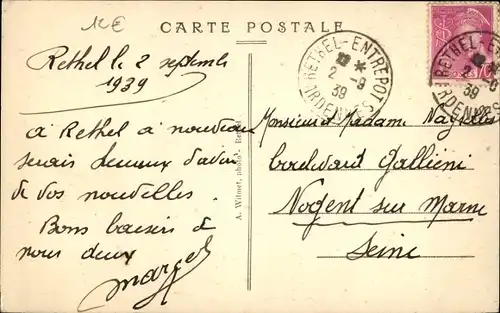 12€
CARTE POSTALE
Rethel le 2 septembre
1939
à Rethel à nouveau
serais heureux d'avoir
de vos nouvelles.
Bons baisers à
vous deux
Marcel
A. Wilmet, photo - Rethel
RETHEL-ENTREPOT
2-9
39
ARDENNES
RETHEL-
2-9
39
ARDENNES
Monsieur et Madame
boulevard Gallieni
Nogent sur Marne
Seine